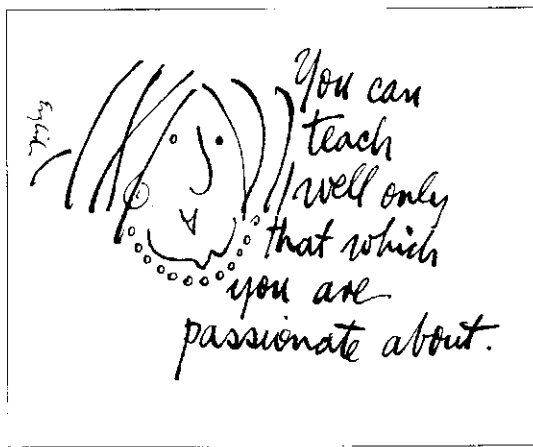 You can
teach
well only
that which
you are
passionate about.